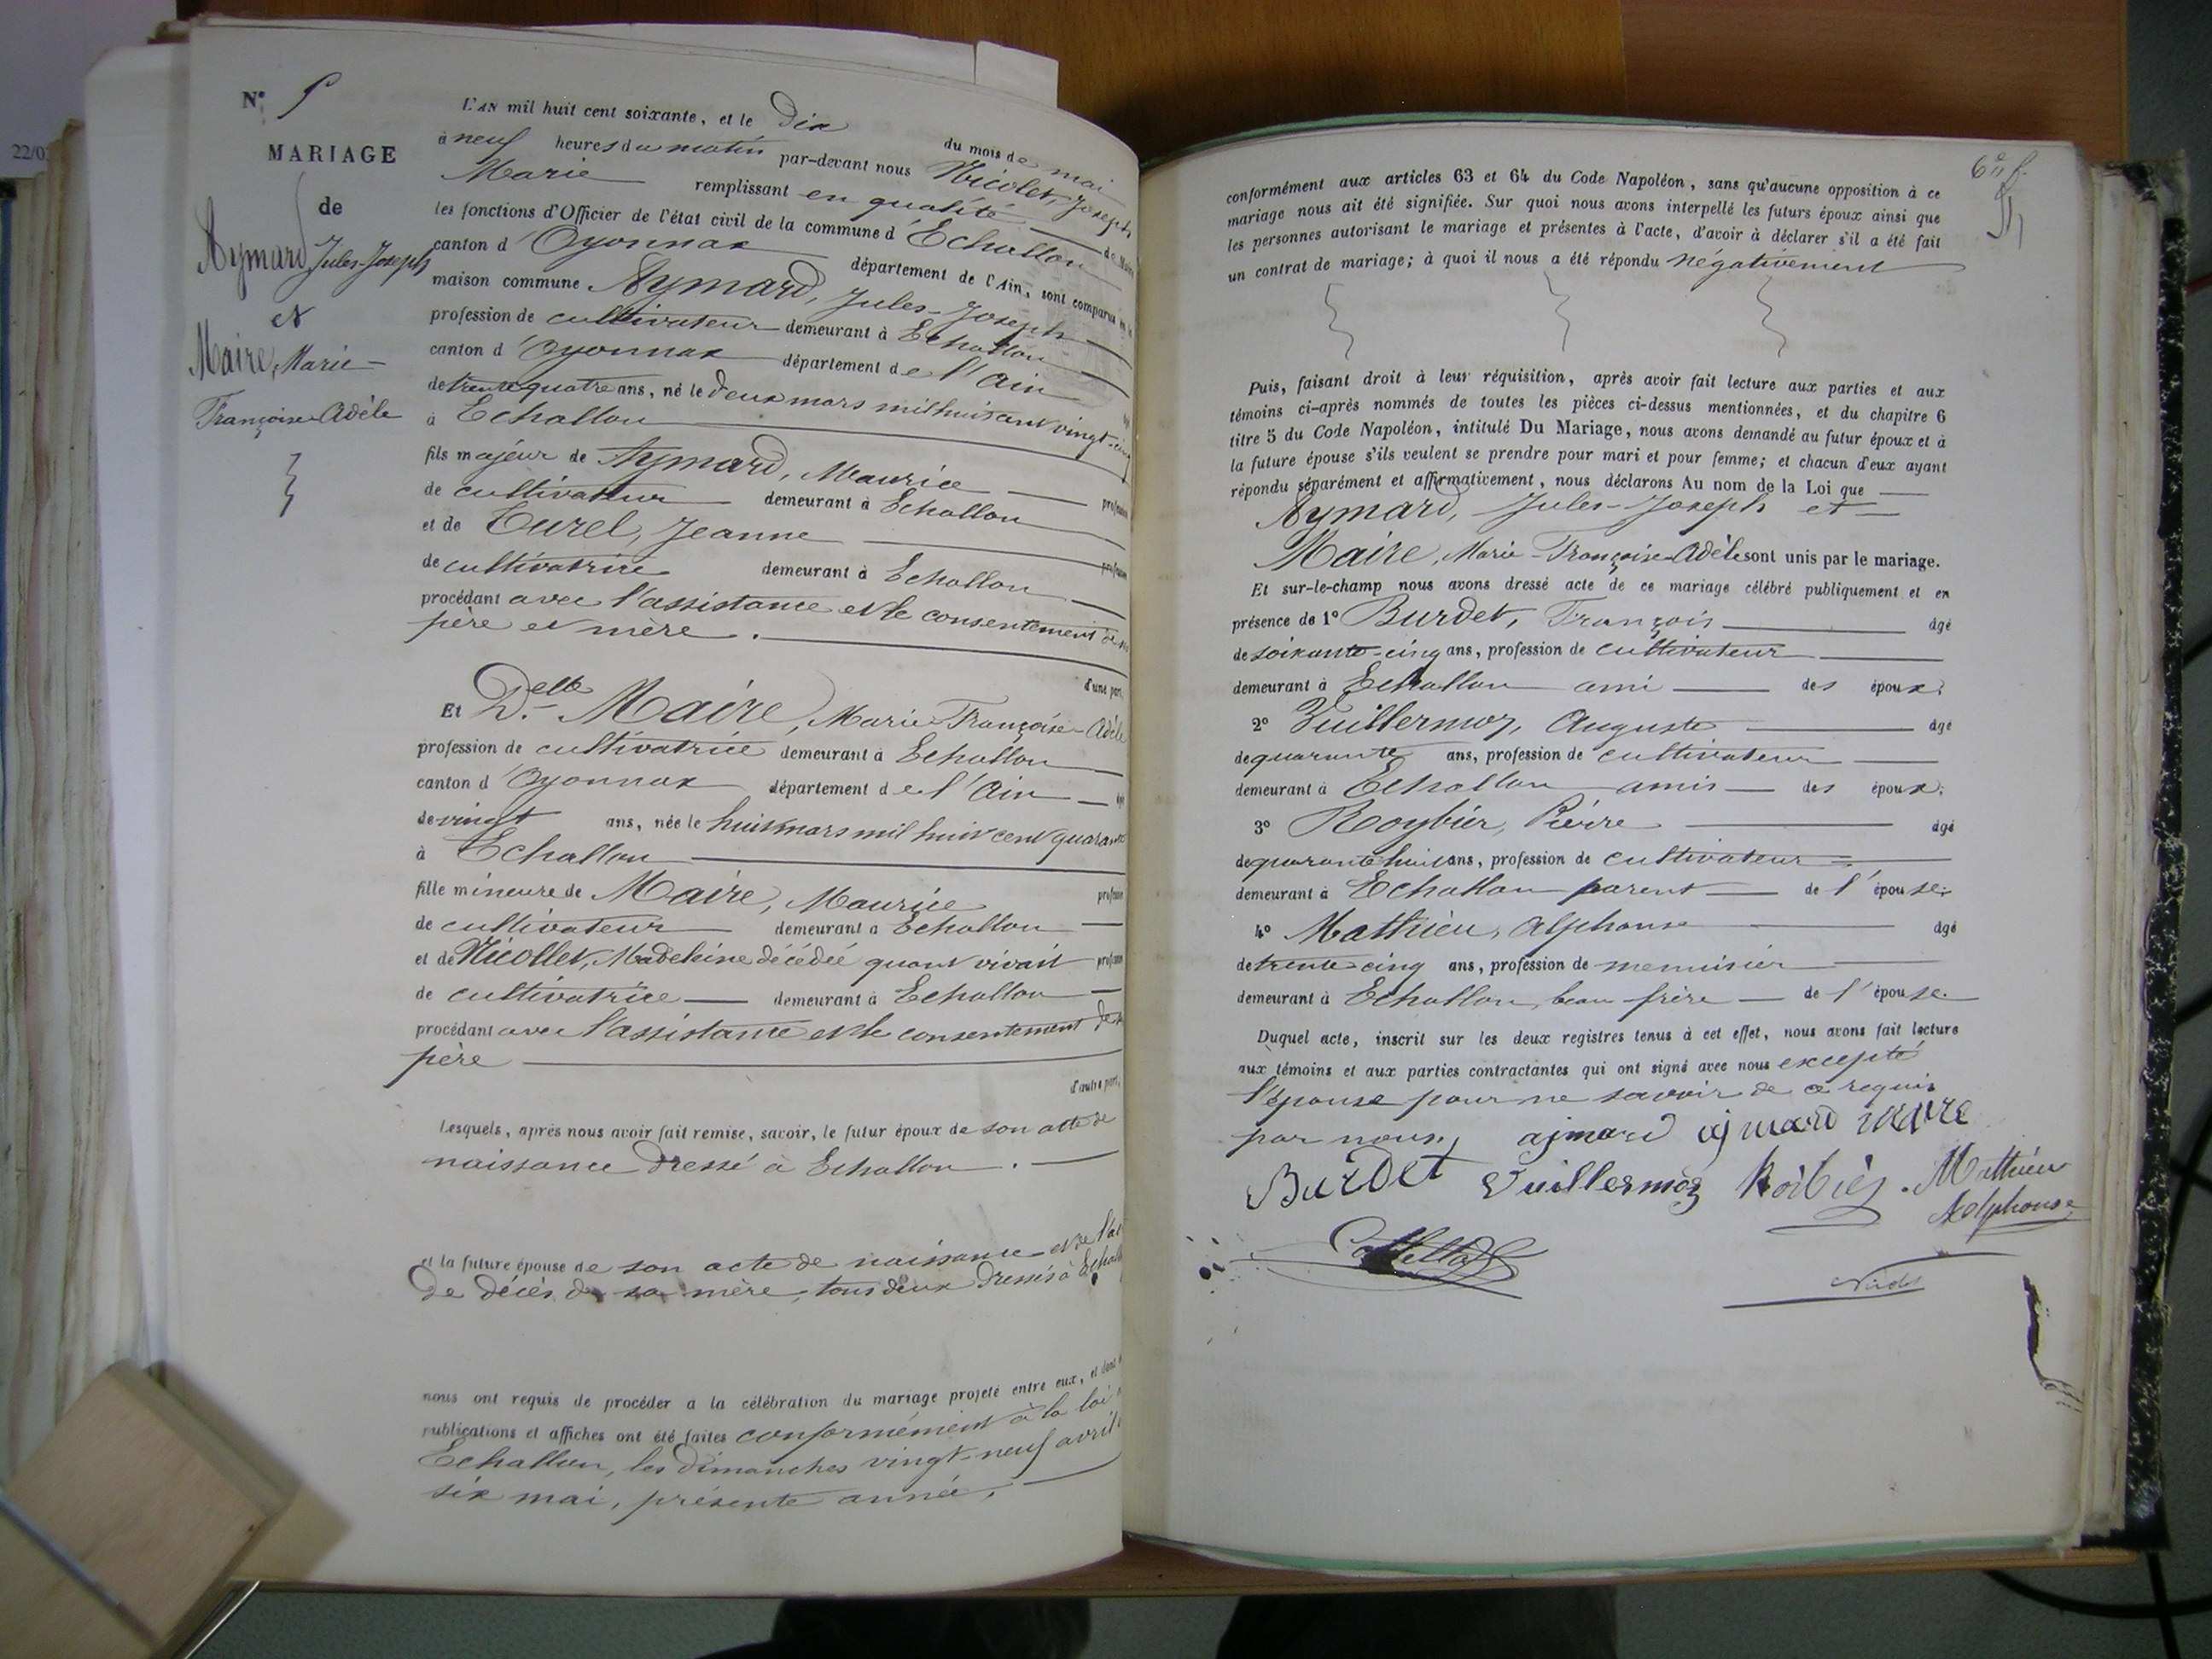 22/0
N° 5
MARIAGE
de
Aymard Jules-Joseph
et
Maire, Marie-
Françoise-Adèle
L'AN mil huit cent soixante, et le Dix du mois de mai
à neuf heures du matin par-devant nous Nicolet, Joseph
Marie remplissant en qualité de Maire
les fonctions d'Officier de l'état civil de la commune d'Echallon
canton d'Oyonnax département de l'Ain, sont comparus en la
maison commune Aymard, Jules-Joseph
profession de cultivateur demeurant à Echallon
canton d'Oyonnax département de l'Ain
de trente quatre ans, né le deux mars mil huit cent vingt-
à Echallon
fils majeur de Aymard, Maurice profession
de cultivateur demeurant à Echallon
et de Turel, Jeanne profession
de cultivatrice demeurant à Echallon
procédant avec l'assistance et le consentement de
père et mère.
d'une part,
Et Delle Maire, Marie-Françoise-Adèle
profession de cultivatrice demeurant à Echallon
canton d'Oyonnax département de l'Ain
de vingt ans, née le huit mars mil huit cent quarante
à Echallon
fille mineure de Maire, Maurice profession
de cultivateur demeurant à Echallon
et de Nicollet, Madeleine décédée quant vivait profession
de cultivatrice demeurant à Echallon
procédant avec l'assistance et le consentement de
père
d'autre part,
Lesquels, après nous avoir fait remise, savoir, le futur époux de son acte de
naissance dressé à Echallon.
et la future épouse de son acte de naissance et de l'
de décès de sa mère, tous deux dressés à Echall
nous ont requis de procéder a la célébration du mariage projeté entre eux, et dont
publications et affiches ont été faites conformément à la loi
Echallon, les dimanches vingt-neuf avril
six mai, présente année.
6e f.
conformément aux articles 63 et 64 du Code Napoléon, sans qu'aucune opposition à ce
mariage nous ait été signifiée. Sur quoi nous avons interpellé les futurs époux ainsi que
les personnes autorisant le mariage et présentes à l'acte, d'avoir à déclarer s'il a été fait
un contrat de mariage; à quoi il nous a été répondu négativement
Puis, faisant droit à leur réquisition, après avoir fait lecture aux parties et aux
témoins ci-après nommés de toutes les pièces ci-dessus mentionnées, et du chapitre 6
titre 5 du Code Napoléon, intitulé Du Mariage, nous avons demandé au futur époux et à
la future épouse s'ils veulent se prendre pour mari et pour femme; et chacun d'eux ayant
répondu séparément et affirmativement, nous déclarons Au nom de la Loi que
Aymard, Jules-Joseph et
Maire, Marie-Françoise-Adèle sont unis par le mariage.
Et sur-le-champ nous avons dressé acte de ce mariage célébré publiquement et en
présence de 1° Burdet, François âgé
de soixante-cinq ans, profession de cultivateur
demeurant à Echallon ami des époux;
2° Vuillermoz, Auguste âgé
de quarante ans, profession de cultivateur
demeurant à Echallon amis des époux;
3° Roybier, Pierre âgé
de quarante huit ans, profession de cultivateur
demeurant à Echallon parent de l'épouse;
4° Mathieu, Alphonse âgé
de trente cinq ans, profession de menuisier
demeurant à Echallon, beau frère de l'épouse.
Duquel acte, inscrit sur les deux registres tenus à cet effet, nous avons fait lecture
aux témoins et aux parties contractantes qui ont signé avec nous excepté
l'épouse pour ne savoir de ce requis
par nous, ajmard ajmard maire
Burdet Vuillermoz Roibier. Mathieu
Adlphonse
Nicolet